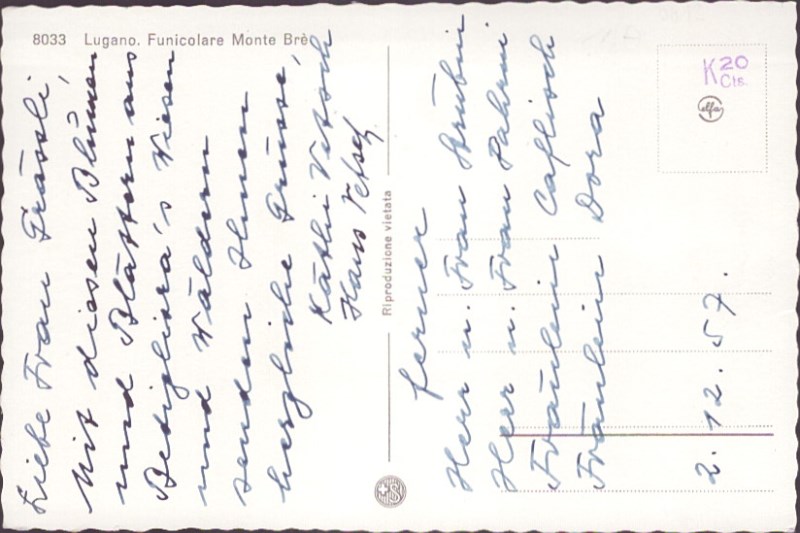 8033 Lugano. Funicolare Monte Brè
Liebe Frau Grässli,
Mit diesen Blumen
und Blättern aus
Bedigliora's Wiesen
und Wäldern
senden Ihnen
herzliche Grüsse,
Käthi Vetsch
Hans Vetsch
Riproduzione vietata
ferner
Herr u. Frau Strübin
Herr u. Frau
Fräulein Caflisch
Fräulein Dora
2. 12. 57.
K 20
Cts.